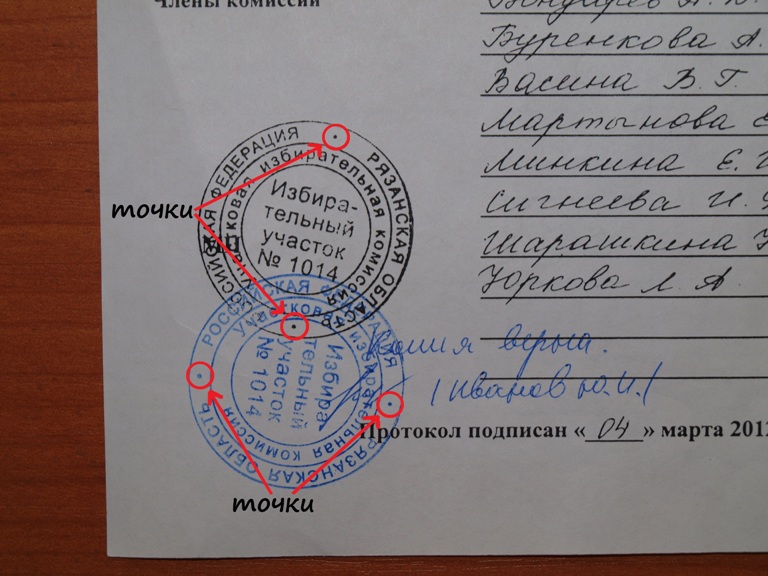 Члены комиссии
Буренкова А.
Васина В. Г.
Мартынова
Минкина Е.
Сигнеева И.
Шарашкина
Юркова Л. А.
РОССИЙСКАЯ ФЕДЕРАЦИЯ
РЯЗАНСКАЯ ОБЛАСТЬ
Участковая избирательная комиссия
Избира-
тельный
участок
№ 1014
точки
МП
РОССИЙСКАЯ ФЕДЕРАЦИЯ
РЯЗАНСКАЯ ОБЛАСТЬ
Участковая избирательная комиссия
Избира-
тельный
участок
№ 1014
Копия верна.
(Иванов Ю.И.)
Протокол подписан « 04 » марта 2012
точки